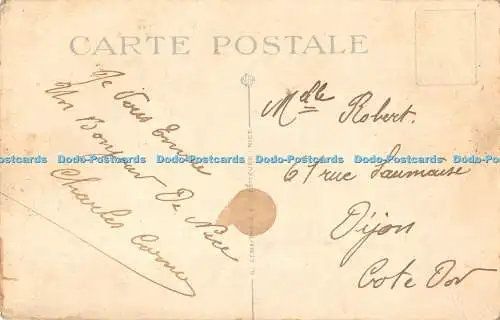 CARTE POSTALE
Je Vous Envoie
Un Bonjour De Nice
Charles
Mdlle Robert.
61 rue Saumaise
Dijon
Cote Dor
Dodo-Postcards Dodo-Postcards Dodo-Postcards Dodo-Postcards Dodo-Postcards